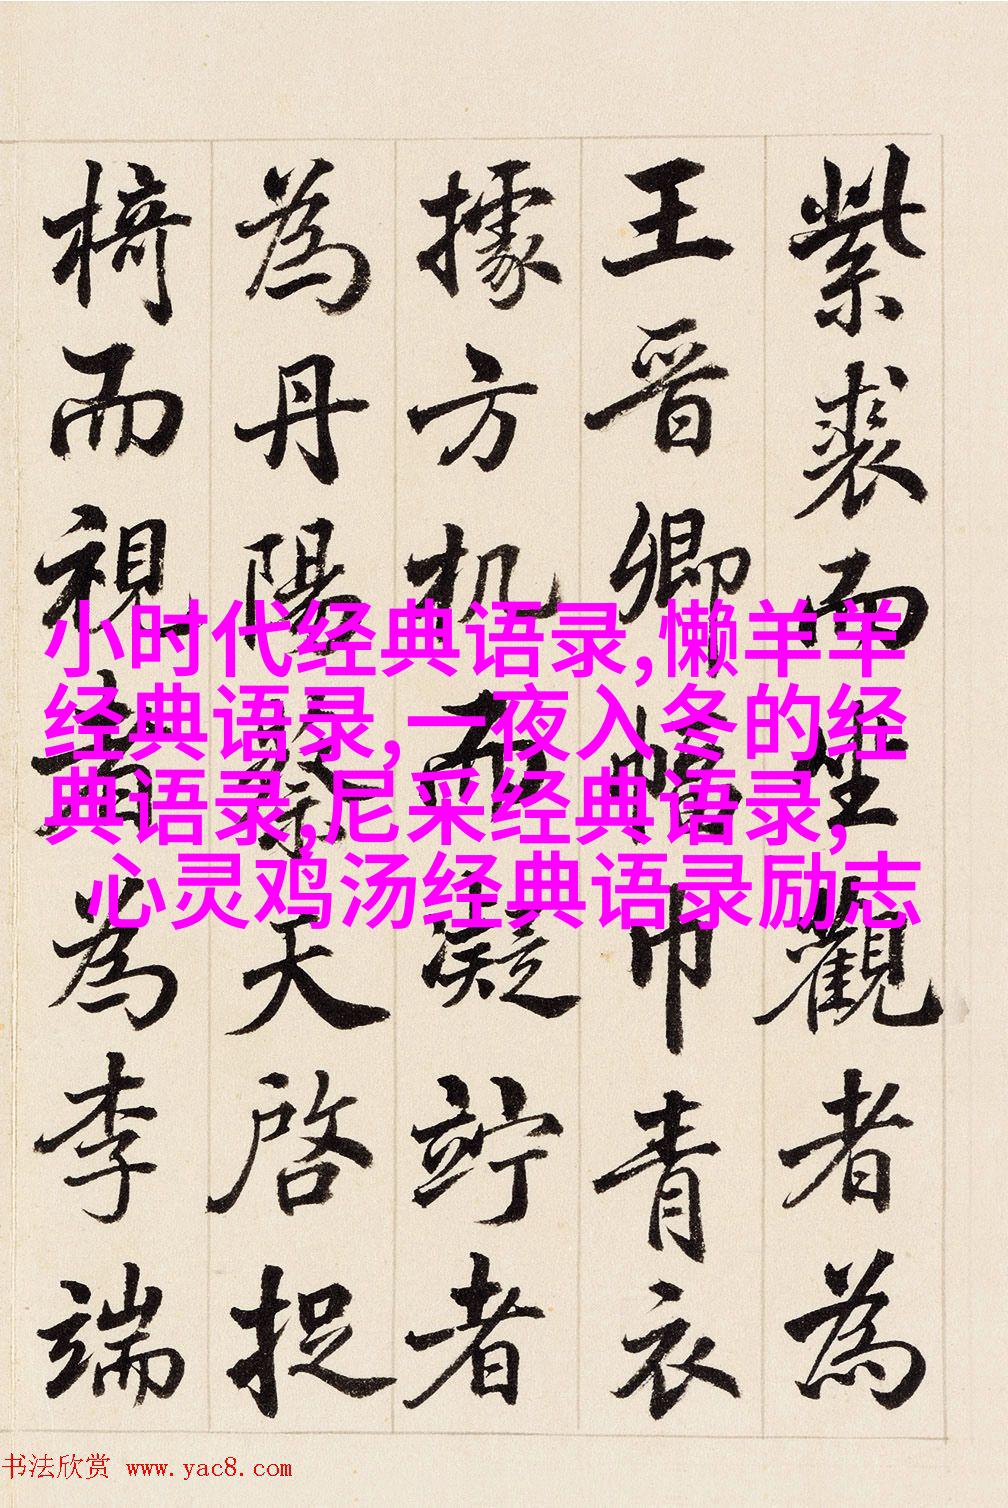 紫裘而坐觀者為
王晉卿幅巾青衣
據方机而凝竚者
為丹陽蔡天啓捉
椅而視者為李端
小时代经典语录,懒羊羊
经典语录,一夜入冬的经
典语录,尼采经典语录,
心灵鸡汤经典语录励志
书法欣赏 www.yac8.com